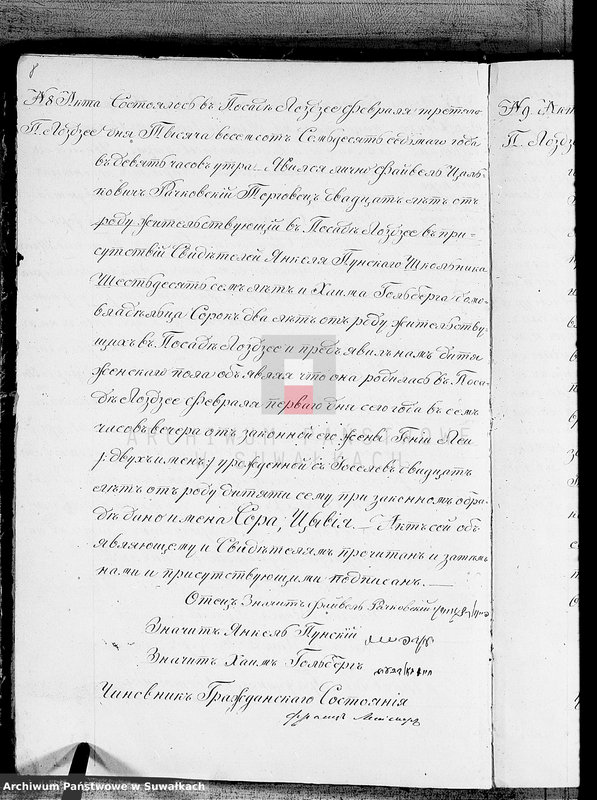 8
№8 Акта Состоялось въ Посадѣ Лоздзее Февраля третяго
П. Лоздзее дня Тысяча восемсотъ Семьдесятъ седмаго года
въ девять часовъ утра. Явился лично Файвель Цаль-
ковичъ Рачковскій Торговецъ двадцать лѣтъ отъ
роду жительствующій въ Посадѣ Лоздзее въ при-
сутствіи Свидѣтелей Янкеля Пунскаго Школьника
Шестьдесятъ семь лѣтъ и Хаима Гольберга домо-
владѣльца Сорокъ два лѣтъ отъ роду жительству-
щихъ въ Посадѣ Лоздзее и предъявилъ намъ дитя
женскаго пола объявляя что она родилась въ Поса-
дѣ Лоздзее Февраля перваго дня сего года въ семь
часовъ вечера отъ законной его жены Гени Леи
/:двухъ именъ:/ урожденной съ двадцать
лѣтъ отъ роду дитяти сему при законномъ обря-
дѣ дано имена Сора, Цывія. Актъ сей объ
являющему и Свидѣтелямъ прочитанъ и затѣмъ
нами и присутствующими подписанъ.
Отецъ Значитъ Файвель Рачковскій
Значитъ Янкель Пунскій
Значитъ Хаимъ Гольбергъ
Чиновникъ Гражданскаго Состоянія
№9. Акт
П. Лоздз
ARCHIWUM PAŃSTWOWE
W SUWAŁKACH
Archiwum Państwowe w Suwałkach